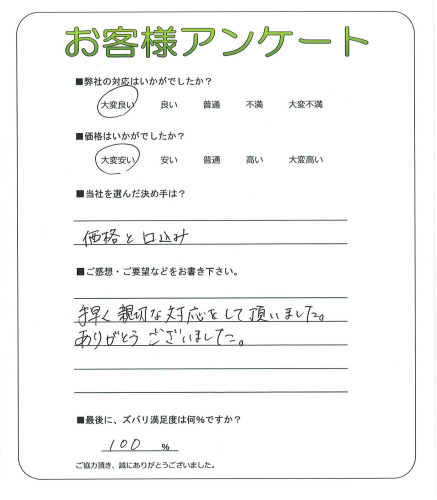 お客様アンケート
■弊社の対応はいかがでしたか？
大変良い 良い 普通 不満 大変不満
■価格はいかがでしたか？
大変安い 安い 普通 高い 大変高い
■当社を選んだ決め手は？
価格と口込み
■ご感想・ご要望などをお書き下さい。
早く親切な対応をして頂いました。
ありがとうございました。
■最後に、ズバリ満足度は何%ですか？
100 %
ご協力頂き、誠にありがとうございました。